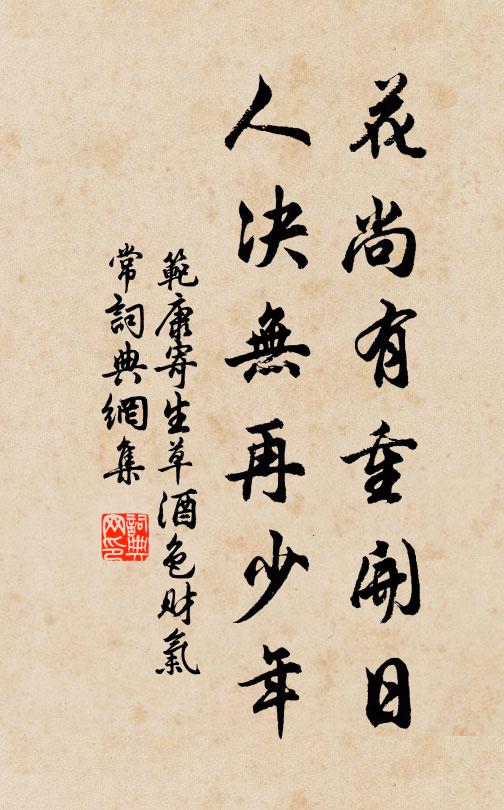 花尚有重開日
人決無再少年
範康寄生草酒色財氣
常詞典網集
詞典网印